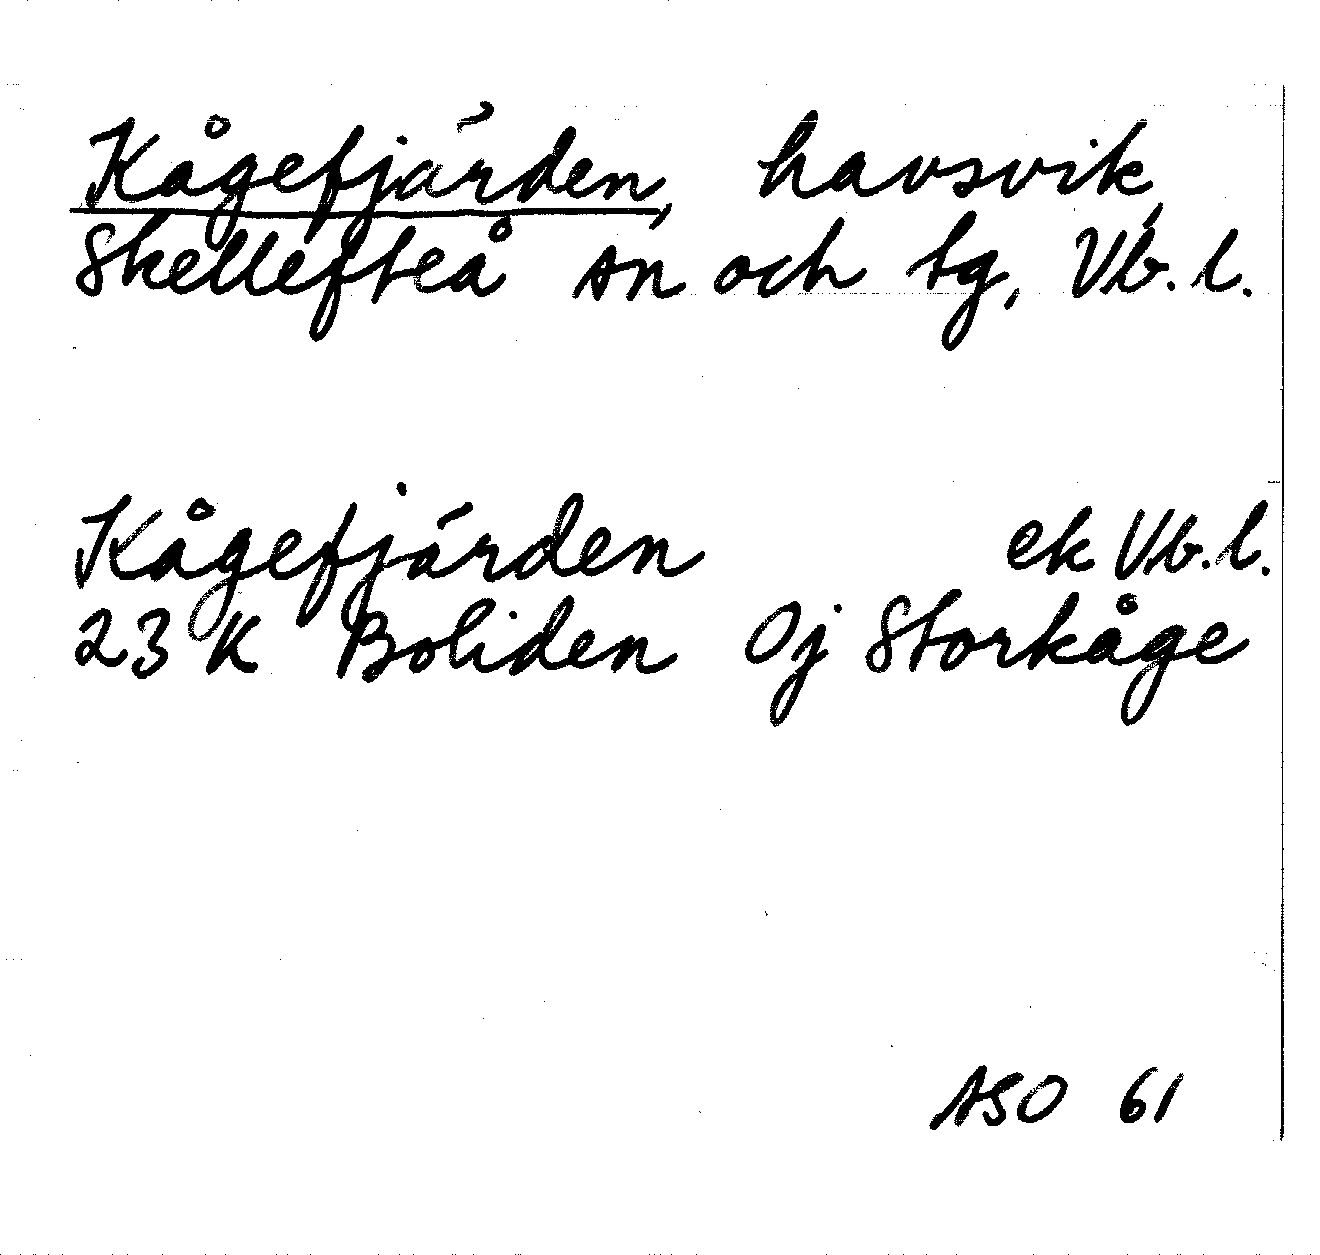 Kågefjärden, havsvik,
Skellefteå sn och tg, Vb. l.
Kågefjärden ek Vb. l.
23 K Boliden Oj Storkåge
ASO 61